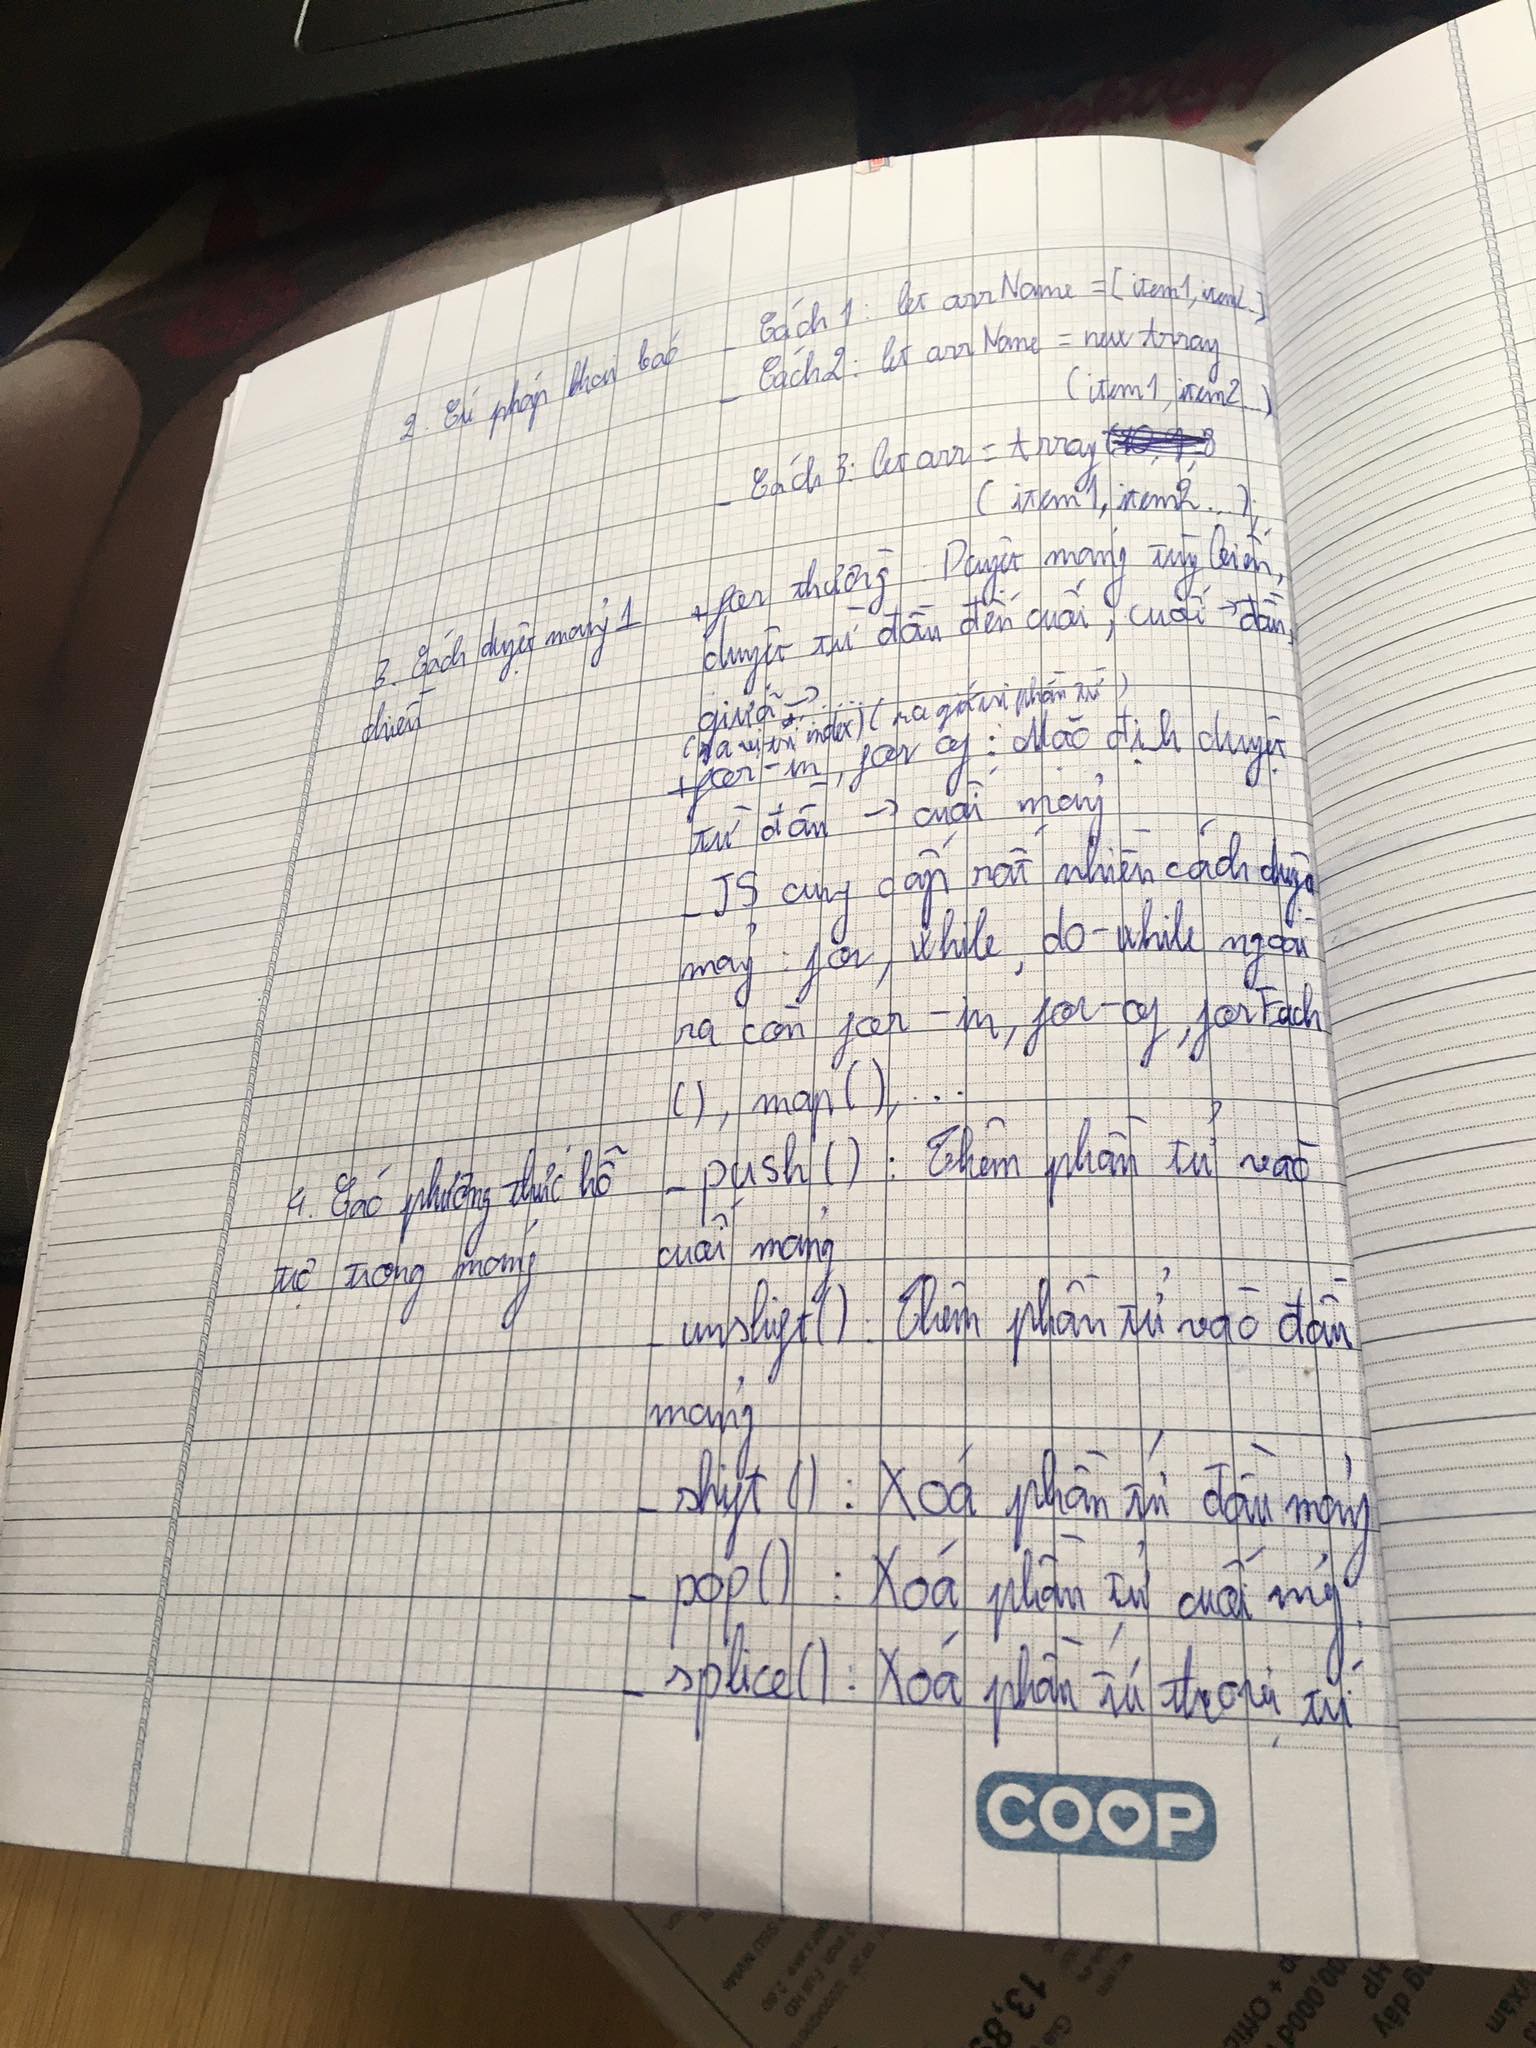 2. Cú pháp khai báo
- Cách 1: let arrName = [item1, item2..]
- Cách 2: let arrName = new Array
(item1, item2...)
- Cách 3: let arr = Array
(item1, item2...);
3. Cách duyệt mảng 1
chiều
+ for thường: Duyệt mảng tùy biến,
duyệt từ đầu đến cuối, cuối → đầu,
giữa → ....
(ra vị trí index) (ra giá trị phần tử)
+ for-in, for of: Mặc định duyệt
từ đầu → cuối mảng
- JS cung cấp rất nhiều cách duyệt
mảng: for, while, do-while ngoài
ra còn for-in, for-of, forEach
(), map(), ...
4. Các phương thức hỗ
trợ trong mảng
- push(): Thêm phần tử vào
cuối mảng
- unshift(): Thêm phần tử vào đầu
mảng
- shift(): Xoá phần tử đầu mảng
- pop(): Xoá phần tử cuối mảng
- splice(): Xoá phần tử từ
COOP
13,89